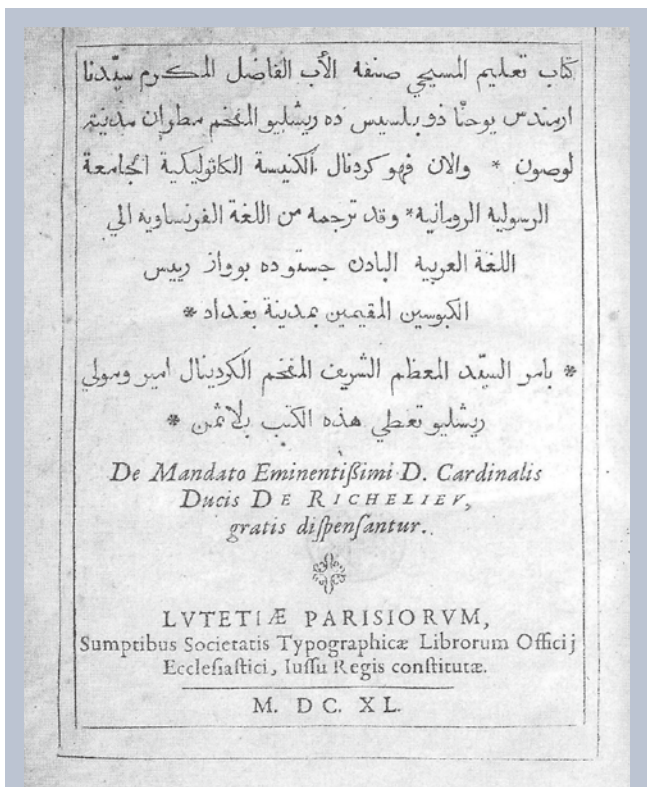 كتاب تعليم المسيحي صنفه الأب الفاضل المكرم سيّدنا
ارمندس يوحنّا دو بلسيس ده ريشليو المفخم مطران مدينة
لوصون * والان فهو كردنال الكنيسة الكاثوليكية الجامعة
الرسولية الرومانية * وقد ترجمه من اللغة الفرنساويه الي
اللغة العربيه البادن جستو ده بوواز رييس
الكبوسين المقيمين بمدينة بغداد *
* بامر السيّد المعظم الشريف المفخم الكردينال امير ومولي
ريشليو تعطي هذه الكتب بلا ثمن *
De Mandato Eminentißimi D. Cardinalis
Ducis DE RICHELIEV,
gratis diſpenſantur.
LVTETIÆ PARISIORVM,
Sumptibus Societatis Typographicæ Librorum Officij
Eccleſiaſtici, Iuſſu Regis conſtitutæ.
M. DC. XL.